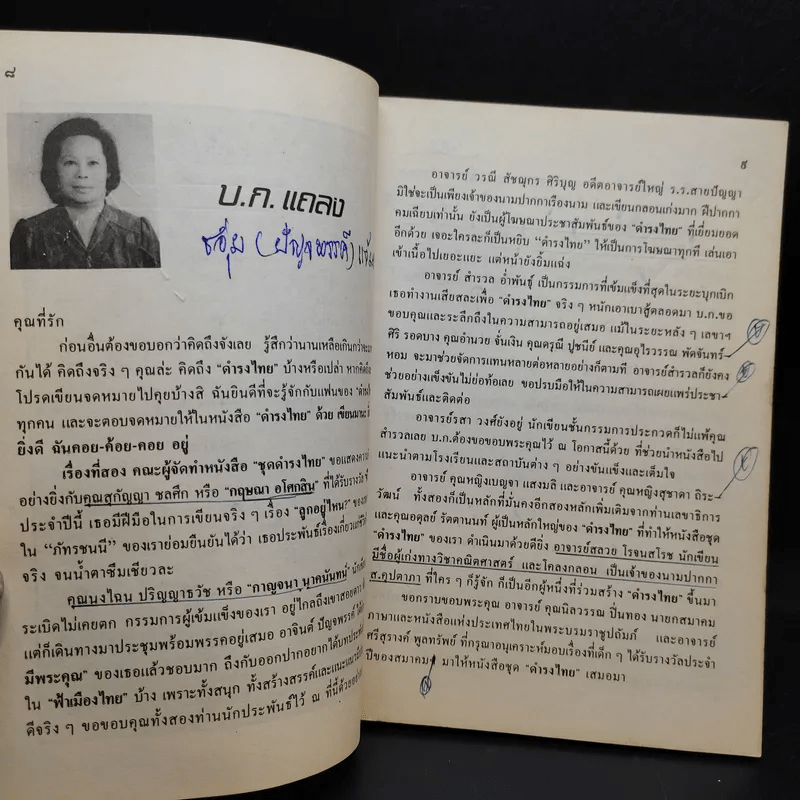 ๘
บ.ก. แถลง
คุณที่รัก
ก่อนอื่นต้องขอบอกว่าคิดถึงจังเลย รู้สึกว่านานเหลือเกินกว่าจะ
กันได้ คิดถึงจริง ๆ คุณล่ะ คิดถึง “ดำรงไทย” บ้างหรือเปล่า หากคิดถึง
โปรดเขียนจดหมายไปคุยบ้างสิ ฉันยินดีที่จะรู้จักกับแฟนของ
ทุกคน และจะตอบจดหมายให้ในหนังสือ “ดำรงไทย” ด้วย เขียนมานะ
ยิ่งดี ฉันคอย-ค้อย-คอย อยู่
เรื่องที่สอง คณะผู้จัดทำหนังสือ “ชุดดำรงไทย” ขอแสดง
อย่างยิ่งกับคุณสุกัญญา ชลศึก หรือ “กฤษณา อโศกสิน” ที่ได้รับรางวัล
ประจำปีนี้ เธอมีฝีมือในการเขียนจริง ๆ เรื่อง “ถูกอยู่ไหน?”
ใน “ภัทรชนนี” ของเราย่อมยืนยันได้ว่า เธอประพันธ์เรื่องเกี่ยว
จริง จนน้ำตาซึมเชียวละ
คุณนงไฉน ปริญญาธวัช หรือ “กาญจนา นาคนันทน์”
ระเบิดไม่เคยตก กรรมการผู้เข้มแข็งของเรา อยู่ไกลถึงเขาสอยดาว
แต่ก็เดินทางมาประชุมพร้อมพรรคอยู่เสมอ อาจินต์ ปัญจพรรค์
มีพระคุณ” ของเธอแล้วชอบมาก ถึงกับออกปากอยากได้บทประพันธ์
ใน “ฟ้าเมืองไทย” บ้าง เพราะทั้งสนุก ทั้งสร้างสรรค์และ
ดีจริง ๆ ขอขอบคุณทั้งสองท่านนักประพันธ์ไว้ ณ ที่นี้ด้วย
๙
อาจารย์ วรณี สัชฌุกร ศิริบุญ อดีตอาจารย์ใหญ่ ร.ร.สายปัญญา
มิใช่จะเป็นเพียงเจ้าของนามปากกาเรืองนาม และเขียนกลอนเก่งมาก ฝีปากกา
คมเฉียบเท่านั้น ยังเป็นผู้โฆษณาประชาสัมพันธ์ของ “ดำรงไทย” ที่เยี่ยมยอด
อีกด้วย เจอะใครละก็เป็นหยิบ “ดำรงไทย” ให้เป็นการโฆษณาทุกที เล่นเอา
เข้าเนื้อไปเยอะแยะ แต่หน้ายังยิ้มแฉ่ง
อาจารย์ สำรวล อ่ำพันธุ์ เป็นกรรมการที่เข้มแข็งที่สุดในระยะบุกเบิก
เธอทำงานเสียสละเพื่อ “ดำรงไทย” จริง ๆ หนักเอาเบาสู้ตลอดมา บ.ก.ขอ
ขอบคุณและระลึกถึงในความสามารถอยู่เสมอ แม้ในระยะหลัง ๆ เลขาฯ
ศิริ รอดบาง คุณอำนวย จั่นเงิน คุณดรุณี ปูชนีย์ และคุณอุไรวรรณ พัดจันทร์-
หอม จะมาช่วยจัดการแทนหลายต่อหลายอย่างก็ตามที อาจารย์สำรวลก็ยังคง
ช่วยอย่างแข็งขันไม่ย่อท้อเลย ขอปรบมือให้ในความสามารถเผยแพร่ประชา-
สัมพันธ์และติดต่อ
อาจารย์รสา วงศ์ยังอยู่ นักเขียนชั้นกรรมการประกวดก็ไม่แพ้คุณ
สำรวลเลย บ.ก.ต้องขอขอบพระคุณไว้ ณ โอกาสนี้ด้วย ที่ช่วยนำหนังสือไป
แนะนำตามโรงเรียนและสถาบันต่าง ๆ อย่างขันแข็งและเต็มใจ
อาจารย์ คุณหญิงเบญจา แสงมลิ และอาจารย์ คุณหญิงสุชาดา ถิระ-
วัฒน์ ทั้งสองก็เป็นหลักที่มั่นคงอีกสองหลักเพิ่มเติมจากท่านเลขาธิการ
และคุณอดุลย์ รัตตานนท์ ผู้เป็นหลักใหญ่ของ “ดำรงไทย” ที่ทำให้หนังสือชุด
“ดำรงไทย” ของเรา ดำเนินมาด้วยดียิ่ง อาจารย์สลวย โรจนสโรช นักเขียน
มีชื่อผู้เก่งทางวิชาคณิตศาสตร์ และโคลงกลอน เป็นเจ้าของนามปากกา
ส.คุปตาภา ที่ใคร ๆ ก็รู้จัก ก็เป็นอีกผู้หนึ่งที่ร่วมสร้าง “ดำรงไทย” ขึ้นมา
ขอกราบขอบพระคุณ อาจารย์ คุณนิลวรรณ ปิ่นทอง นายกสมาคม
ภาษาและหนังสือแห่งประเทศไทยในพระบรมราชูปถัมภ์ และอาจารย์
ศรีสุรางค์ พูลทรัพย์ ที่กรุณาอนุเคราะห์มอบเรื่องที่เด็ก ๆ ได้รับรางวัลประจำ
ปีของสมาคมฯ มาให้หนังสือชุด “ดำรงไทย” เสมอมา